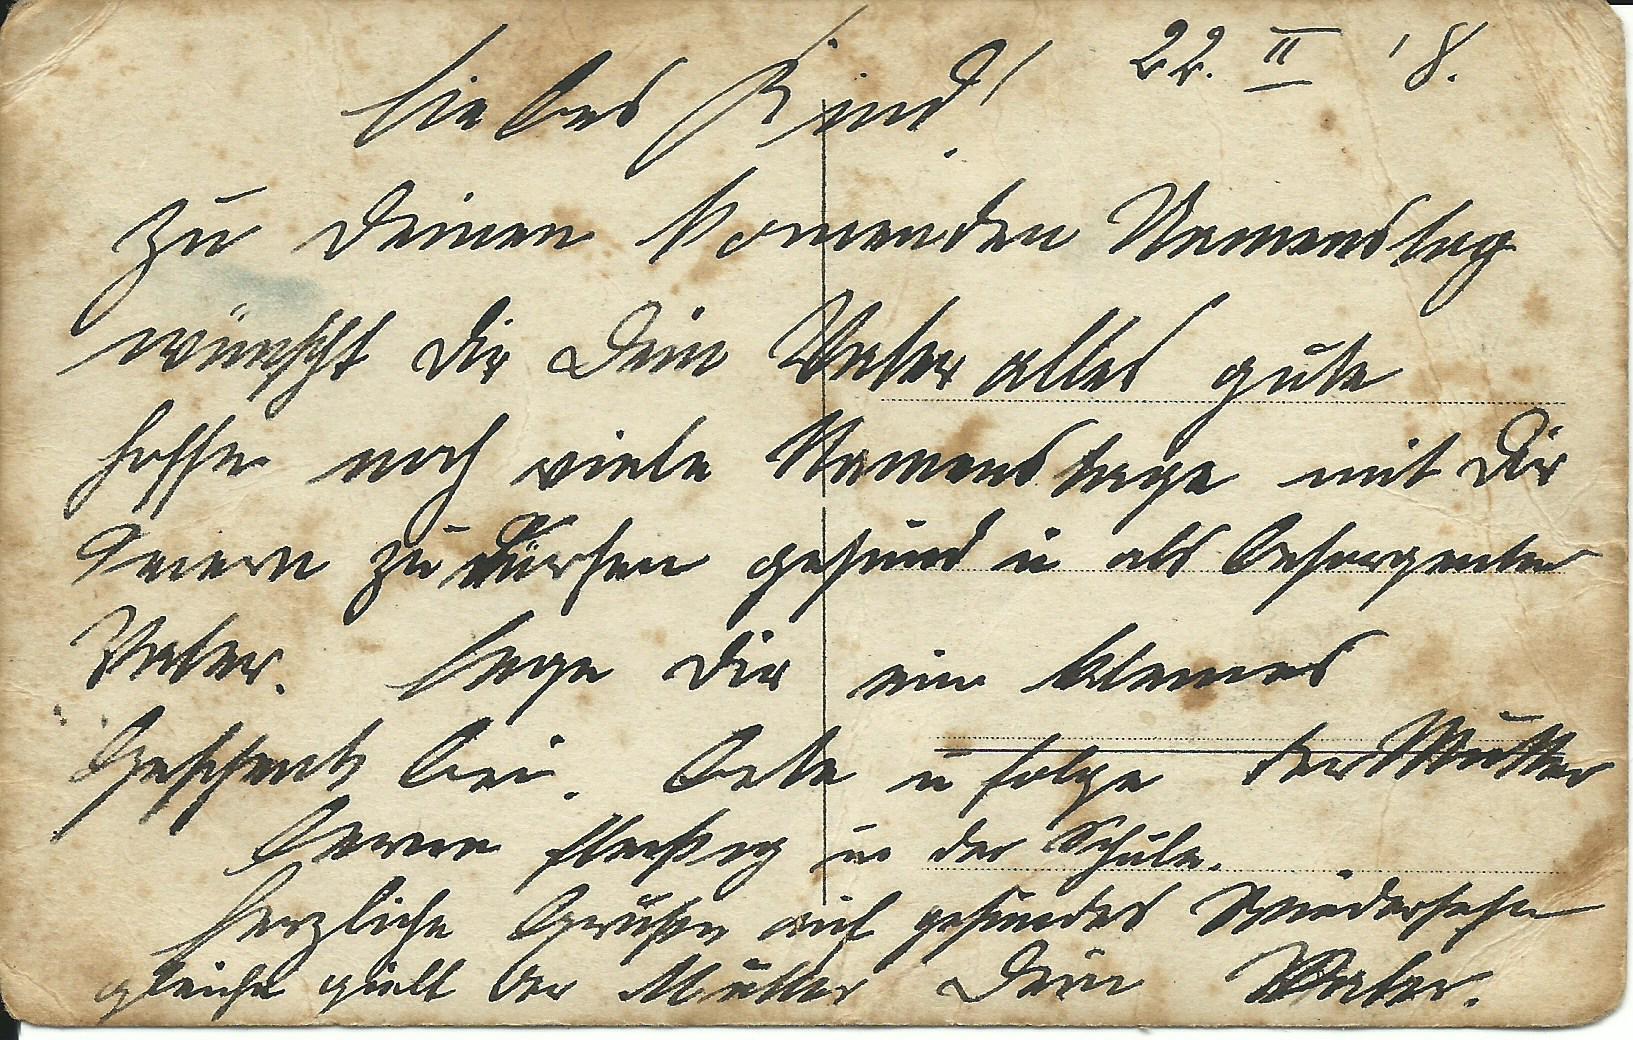 22. II '18.
Liebes Kind!
Zu deinen komenden Namenstag
wünscht dir Dein Vater alles gute
hoffe noch viele Namenstage mit Dir
Feiern zu dürfen gesund u als besorgender
Vater. Lege dir ein kleines
Geschenk bei. Bete u folge der Mutter
Lerne fleißig in der Schule.
Herzliche Grüße auf gesundes Wiedersehn
gleiche gielt der Mutter Dein Vater.